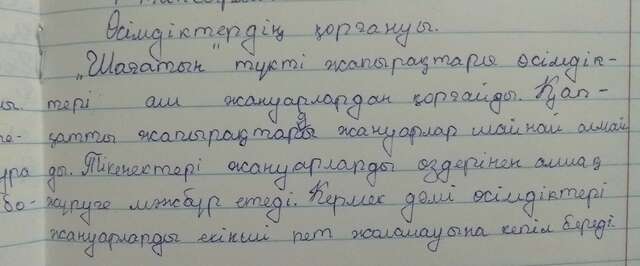 Өсімдіктердің қорғануы.
„Шағатын" түкті жапырақтары өсімдік-
тері аш жануарлардан қорғайды. Қап-
қатты жапырақтарды жануарлар шайнай алмай
ды. Тікенектері жануарларды өздерінен алшақ
жүруге мәжбүр етеді. Кермек дәмі өсімдіктері
жануарларды екінші рет жаламауына кепіл береді.